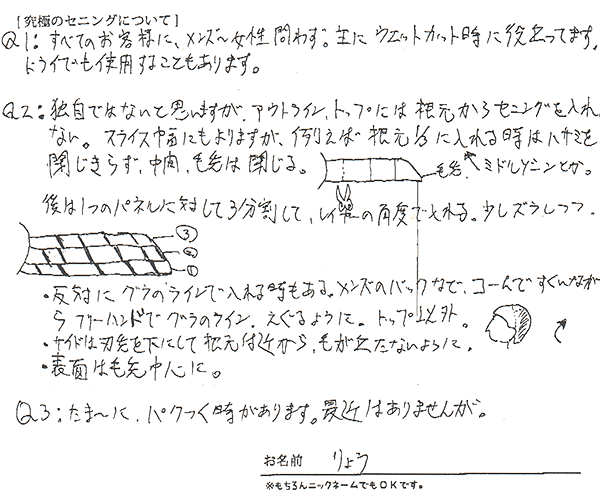 [究極のセニングについて]
Q1:すべてのお客様に、メンズ〜女性問わず。主にウエットカット時に役立ってます。
ドライでも使用することもあります。
Q2:独自ではないと思いますが、アウトライン、トップには根元からセニングを入れ
ない。スライス巾にもよりますが、例えば根元1/3に入れる時はハサミを
閉じきらず、中間、毛先は閉じる。
毛先 ミドルゾーンとか。
後は1つのパネルに対して3分割して、レイヤーの角度で入れる。少しズラしつつ。
③
②
①
・反対にグラのラインで入れる時もある。メンズのバックなどで、コームですくいなが
らフリーハンドでグラのライン、えぐるように。トップ以外。
・サイドは刃先を下にして根元付近から、毛が立たないように。
・表面は毛先中心に。
Q3:たま〜に、パクつく時があります。最近はありませんが。
お名前 りょう
※もちろんニックネームでもOKです。